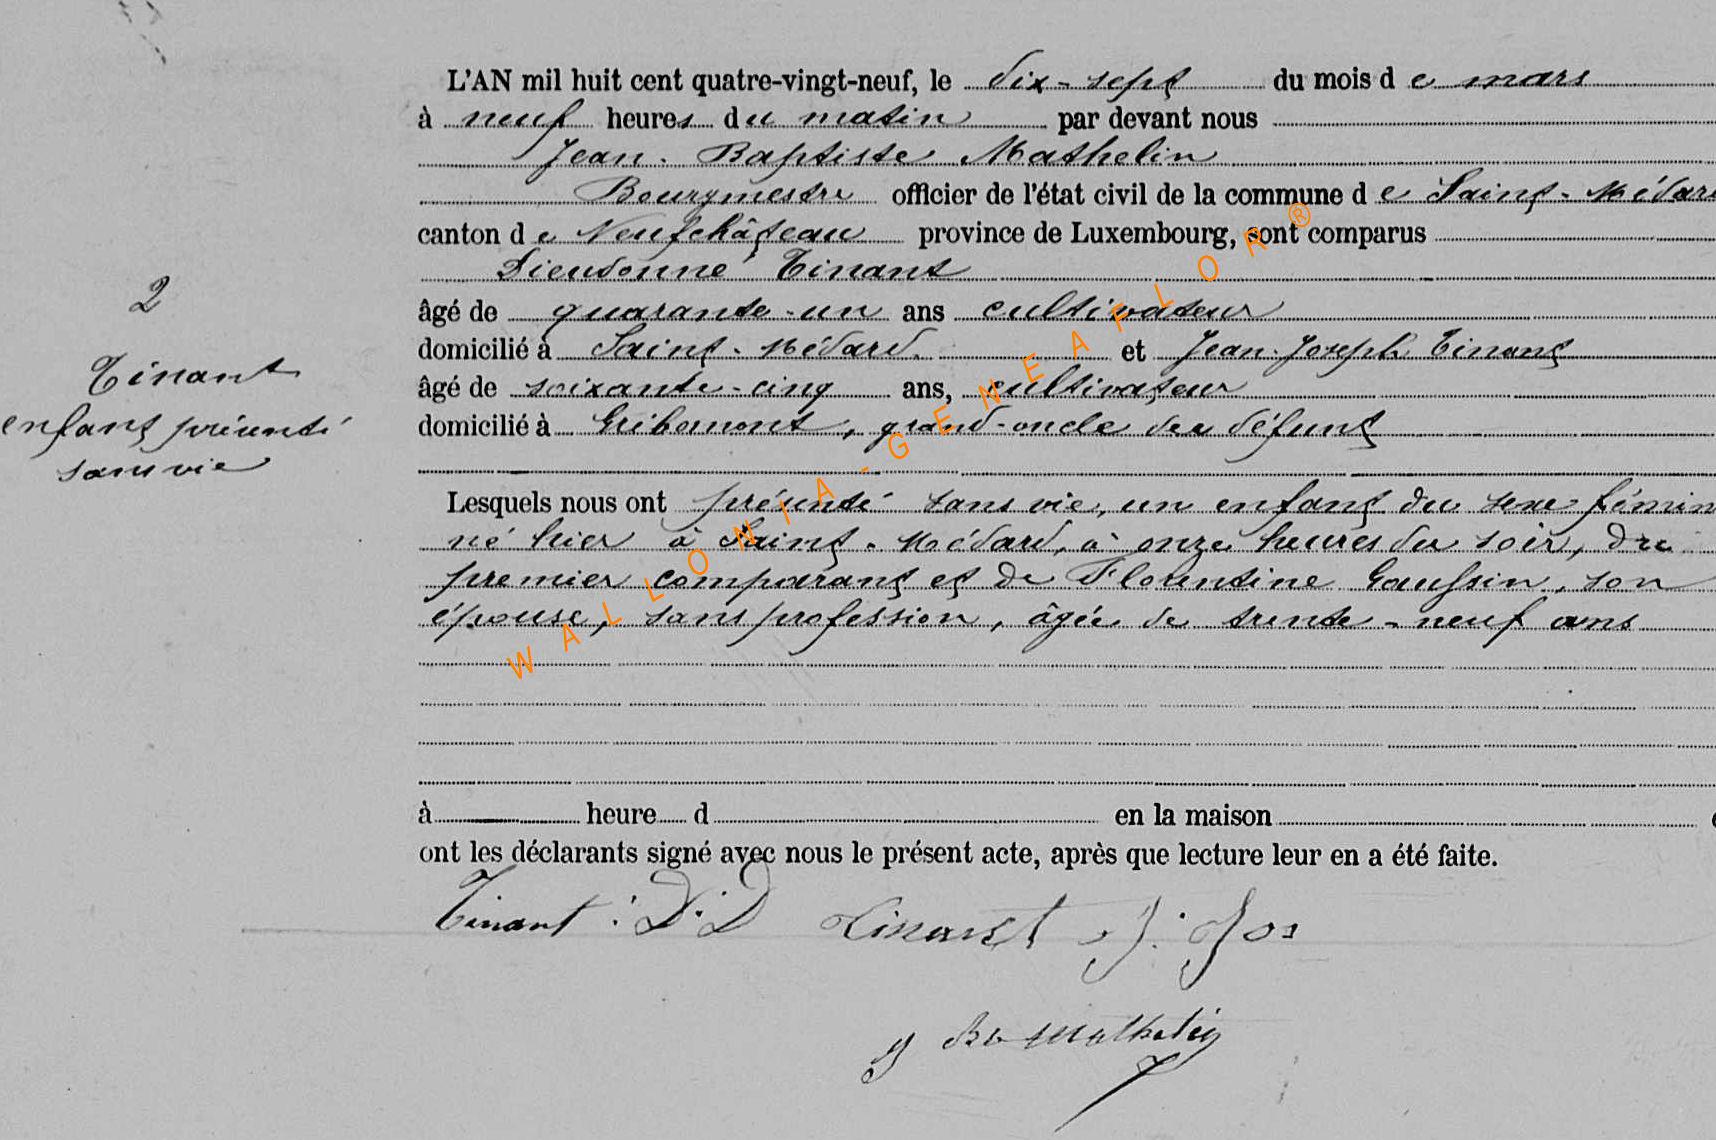 L'AN mil huit cent quatre-vingt-neuf, le dix-sept du mois de mars
à neuf heures du matin par devant nous
Jean-Baptiste Mathelin
Bourgmestre officier de l'état civil de la commune de Saint-Médard
canton de Neufchâteau province de Luxembourg, sont comparus
Dieudonné Tinant
âgé de quarante-un ans cultivateur
domicilié à Saint-Médard. et Jean-Joseph Tinant
âgé de soixante-cinq ans, cultivateur
domicilié à Gribomont, grand-oncle du défunt
2
Tinant
enfant présenté
sans vie
Lesquels nous ont présenté sans vie, un enfant du sexe fémin
né hier à Saint-Médard, à onze heures du soir, du
premier comparant et de Florentine Goussin, son
épouse, sans profession, âgée de trente-neuf ans
à heure d en la maison
ont les déclarants signé avec nous le présent acte, après que lecture leur en a été faite.
Tinant : D.D Tinant J. Jos
J Bte Mathelin
WALLONIA-GENEAFLOR®